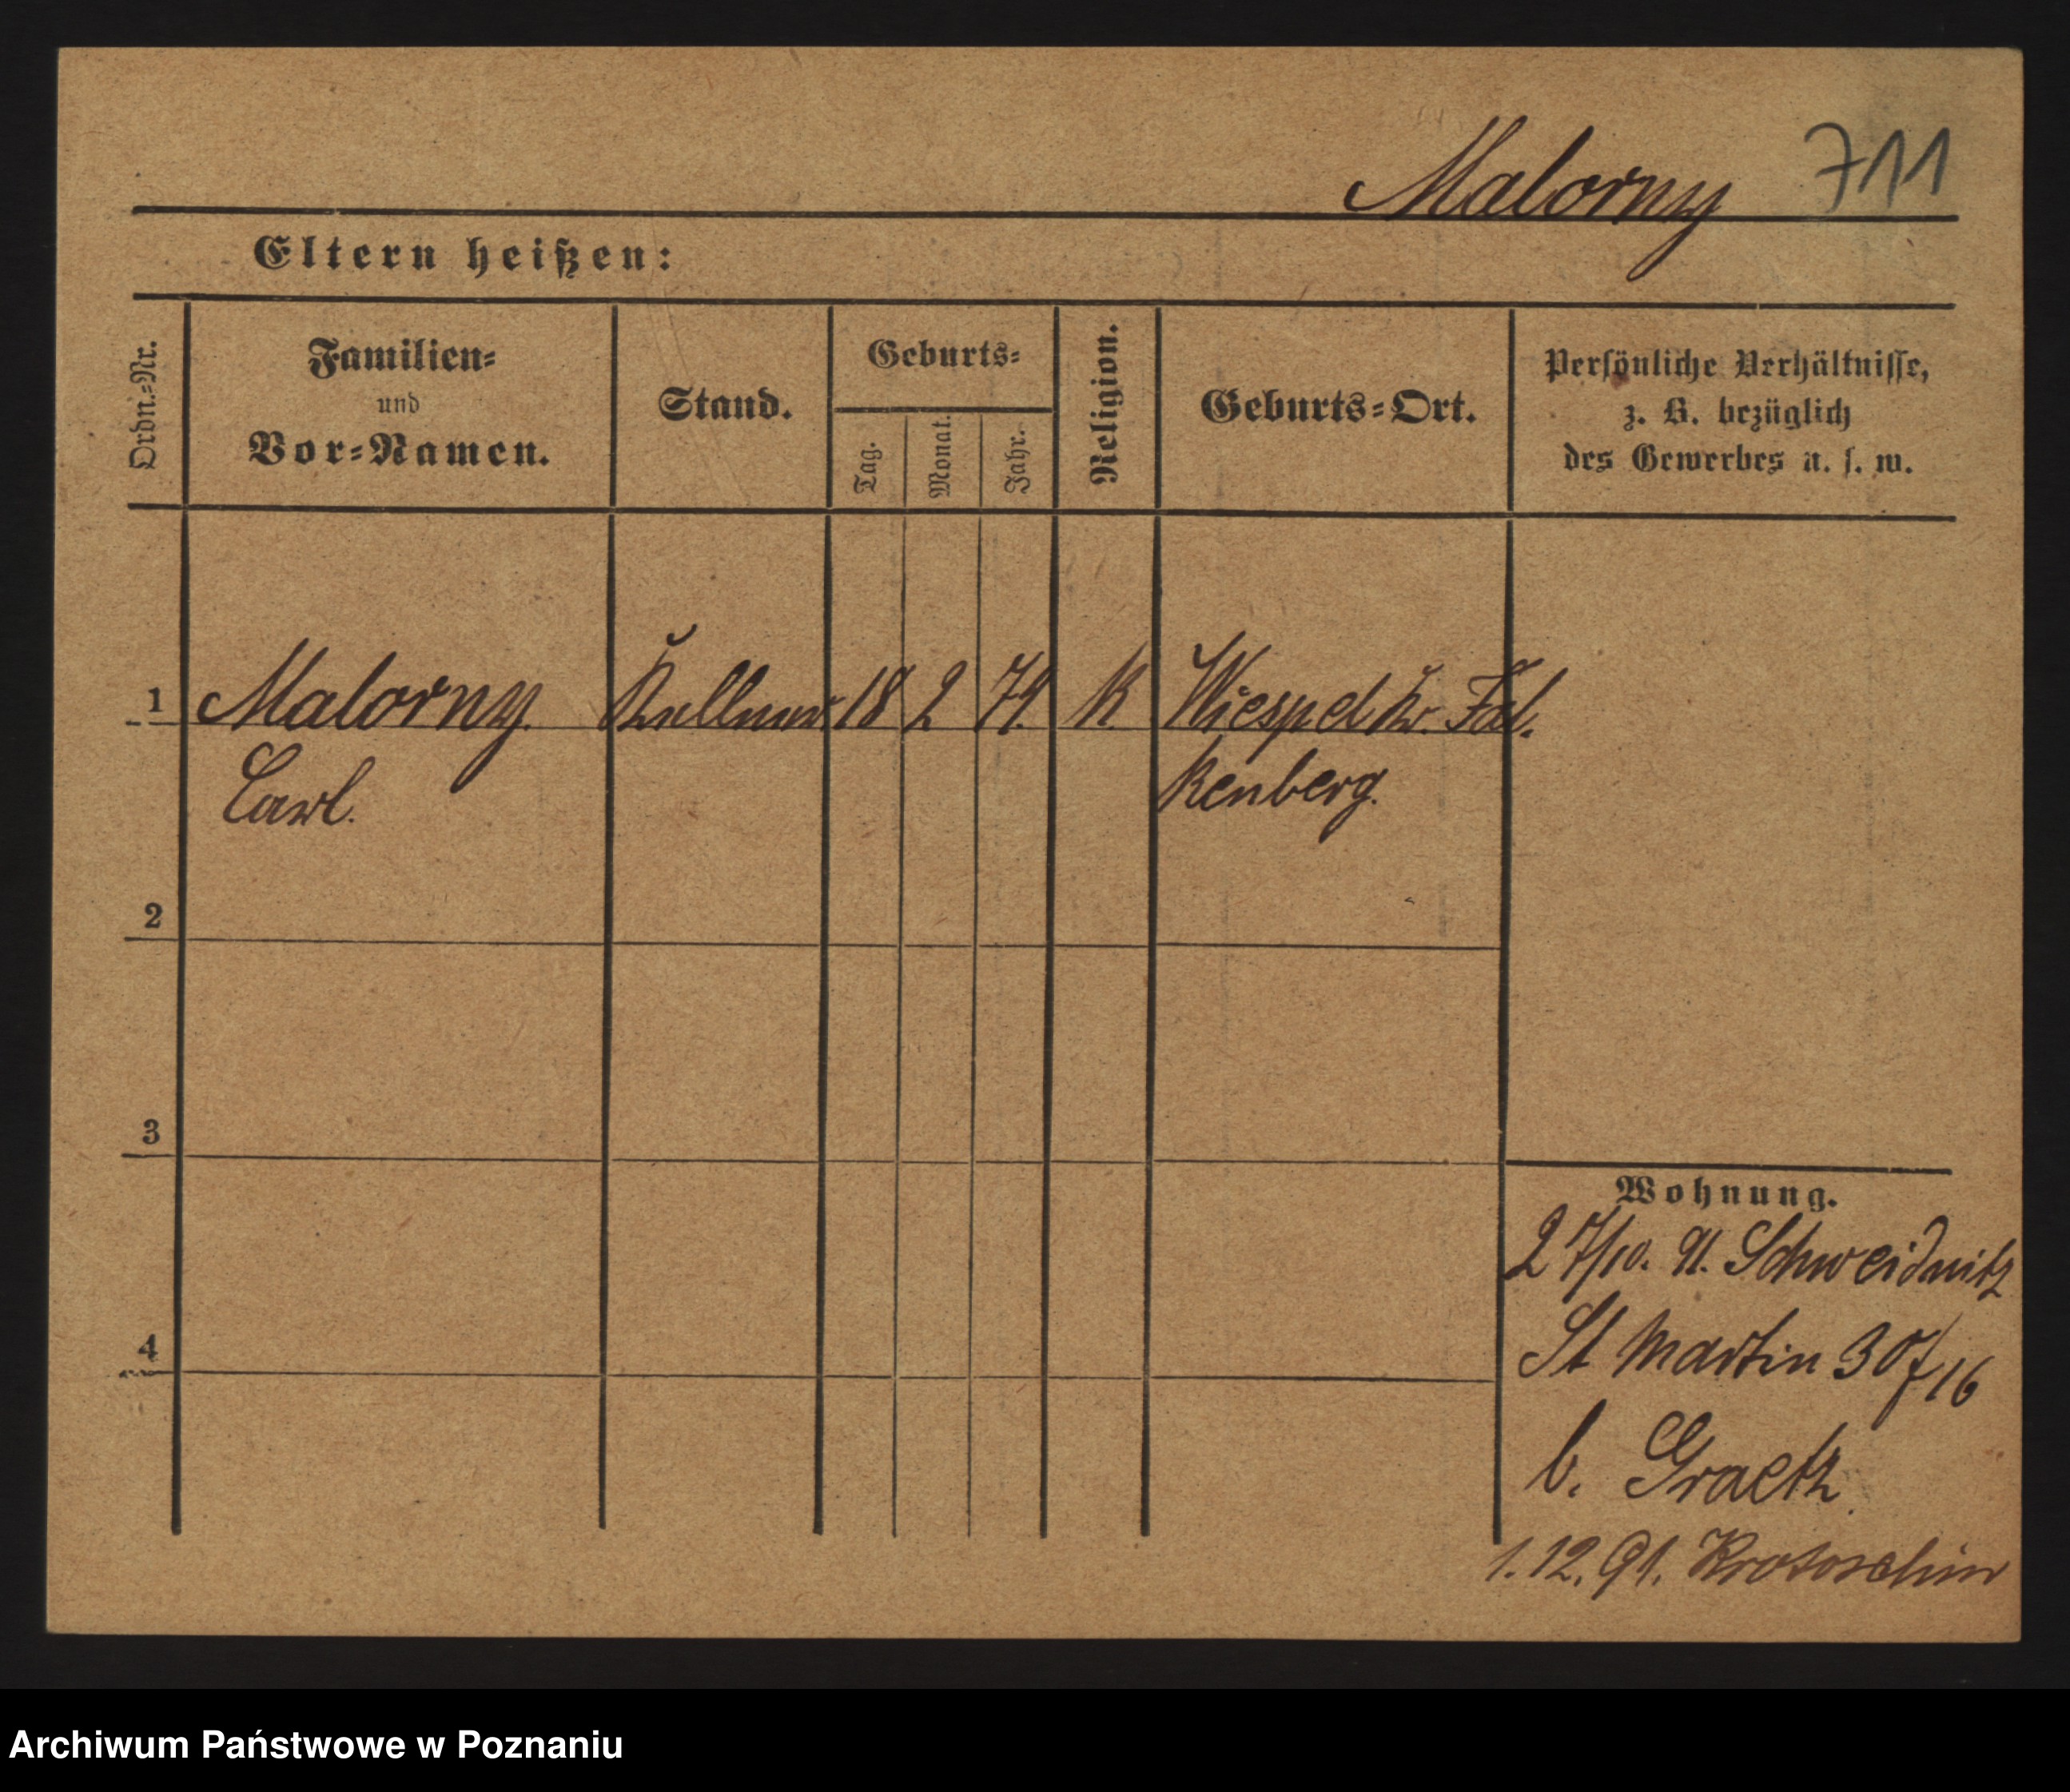 Malorny 711
Eltern heißen:
Ordn.-Nr.
Familien-
und
Vor-Namen.
Stand.
Geburts-
Tag.
Monat.
Jahr.
Religion.
Geburts-Ort.
Persönliche Verhältnisse,
z. B. bezüglich
des Gewerbes u. s. w.
1 Malorny Kellner 18 2 K Wiespel Kr. Fal-
Carl. kenberg.
2
3
4
Wohnung.
27/10. 91. Schweidnitz
St Martin 16
b. Graetz
1.12.91. Krotoschin
Archiwum Państwowe w Poznaniu